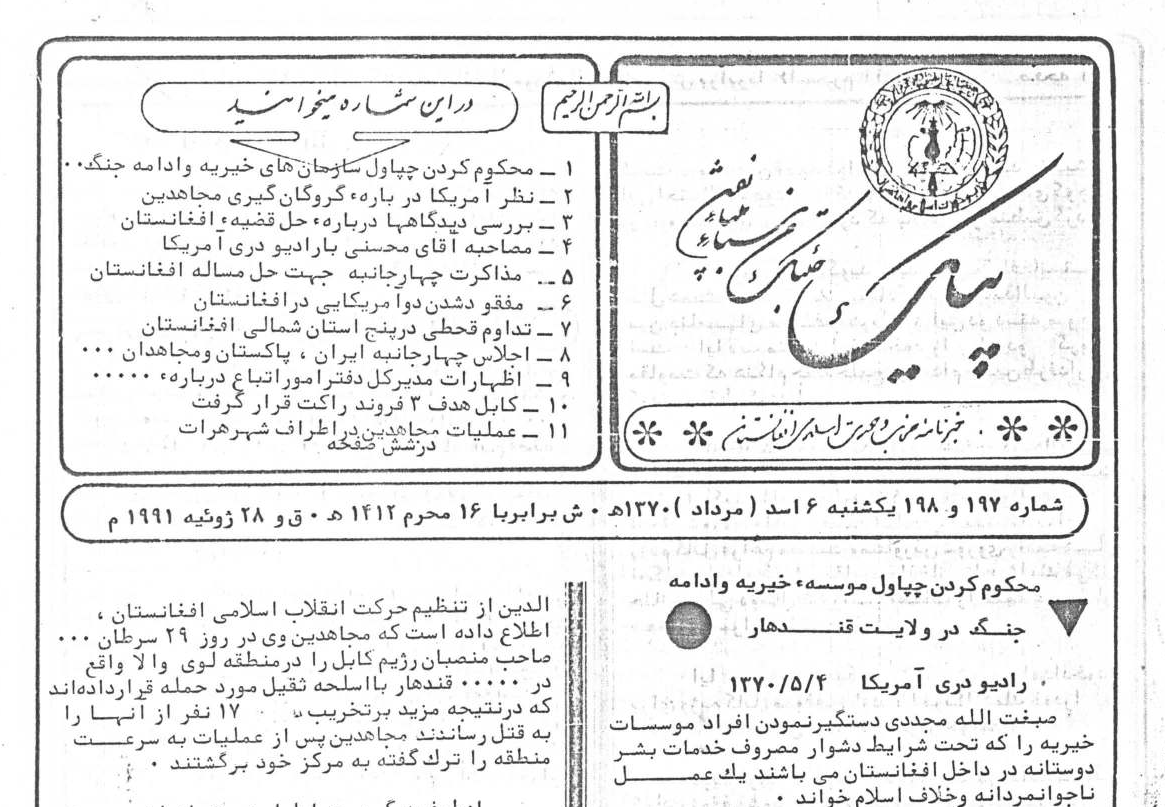 بسم الله الرحمن الرحیم
خبرنامه خبری وحدت اسلامی افغانستان
در این شماره میخوانید
۱ ــ محکوم کردن چپاول سازمان های خیریه وادامه جنگ۰۰
۲ ــ نظر آمریکا در بارهء گروگان گیری مجاهدین
۳ ــ بررسی دیدگاهها دربارهء حل قضیهء افغانستان
۴ ــ مصاحبه آقای محسنی بارادیو دری آمریکا
۵ ــ مذاکرت چهارجانبه جهت حل مساله افغانستان
۶ ــ مفقو دشدن دوآمریکایی درافغانستان
۷ ــ تداوم قحطی درپنج استان شمالی افغانستان
۸ ــ اجلاس چهارجانبه ایران ، پاکستان ومجاهدان ۰۰۰
۹ ــ اظهارات مدیرکل دفترامور اتباع دربارهء ۰۰۰۰۰
۱۰ ــ کابل هدف ۳ فروند راکت قرار گرفت
۱۱ ــ عملیات مجاهدین دراطراف شهرهرات
درشش صفحه
شماره ۱۹۷ و ۱۹۸ یکشنبه ۶ اسد ( مرداد )۱۳۷۰ه‍ ۰ ش برابربا ۱۶ محرم ۱۴۱۲ ه‍ ۰ ق و ۲۸ ژوئیه ۱۹۹۱ م
محکوم کردن چپاول موسسهء خیریه وادامه
جنگ در ولایت قندهار
۰ رادیو دری آمریکا ۱۳۷۰/۵/۴
صبغت الله مجددی دستگیرنمودن افراد موسسات
خیریه را که تحت شرایط دشوار مصروف خدمات بشر
دوستانه در داخل افغانستان می باشند یك عمل
ناجوانمردانه وخلاف اسلام خواند ۰
الدین از تنظیم حرکت انقلاب اسلامی افغانستان ،
اطلاع داده است که مجاهدین وی در روز ۲۹ سرطان ۰۰۰
صاحب منصبان رژیم کابل را درمنطقه لوی والا واقع
در ۰۰۰۰۰ قندهار بااسلحه ثقیل مورد حمله قرارداده‌اند
که درنتیجه مزید برتخریب ۱۷ نفر از آنها را
به قتل رساندند مجاهدین پس از عملیات به سرعت
منطقه را ترك گفته به مرکز خود برگشتند ۰